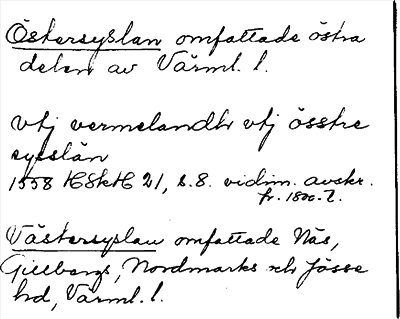 Östersyslan omfattade östra
delen av Värml. l.
vtj vermelandh vtj össtre
sysslän
1558 HSkH 21, s. 8. vidim. avskr.
fr. 1800-t.
Västersyslan omfattade Näs,
Gillbergs, Nordmarks och Jösse
hrd, Värml. l.